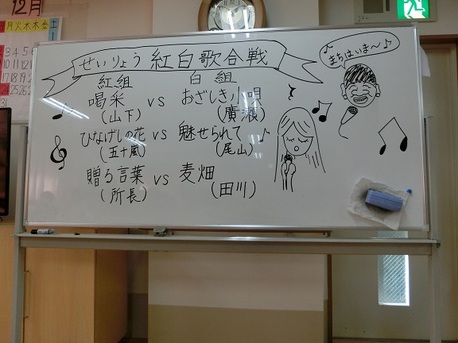 12月
月火水木金土
せいりょう 紅白歌合戦
紅組 白組
喝采 vs おざしき小唄
(山下) (廣浪)
ひなげしの花 vs 魅せられて
(五十嵐) (尾山)
贈る言葉 vs 麦畑
(所長) (田川)